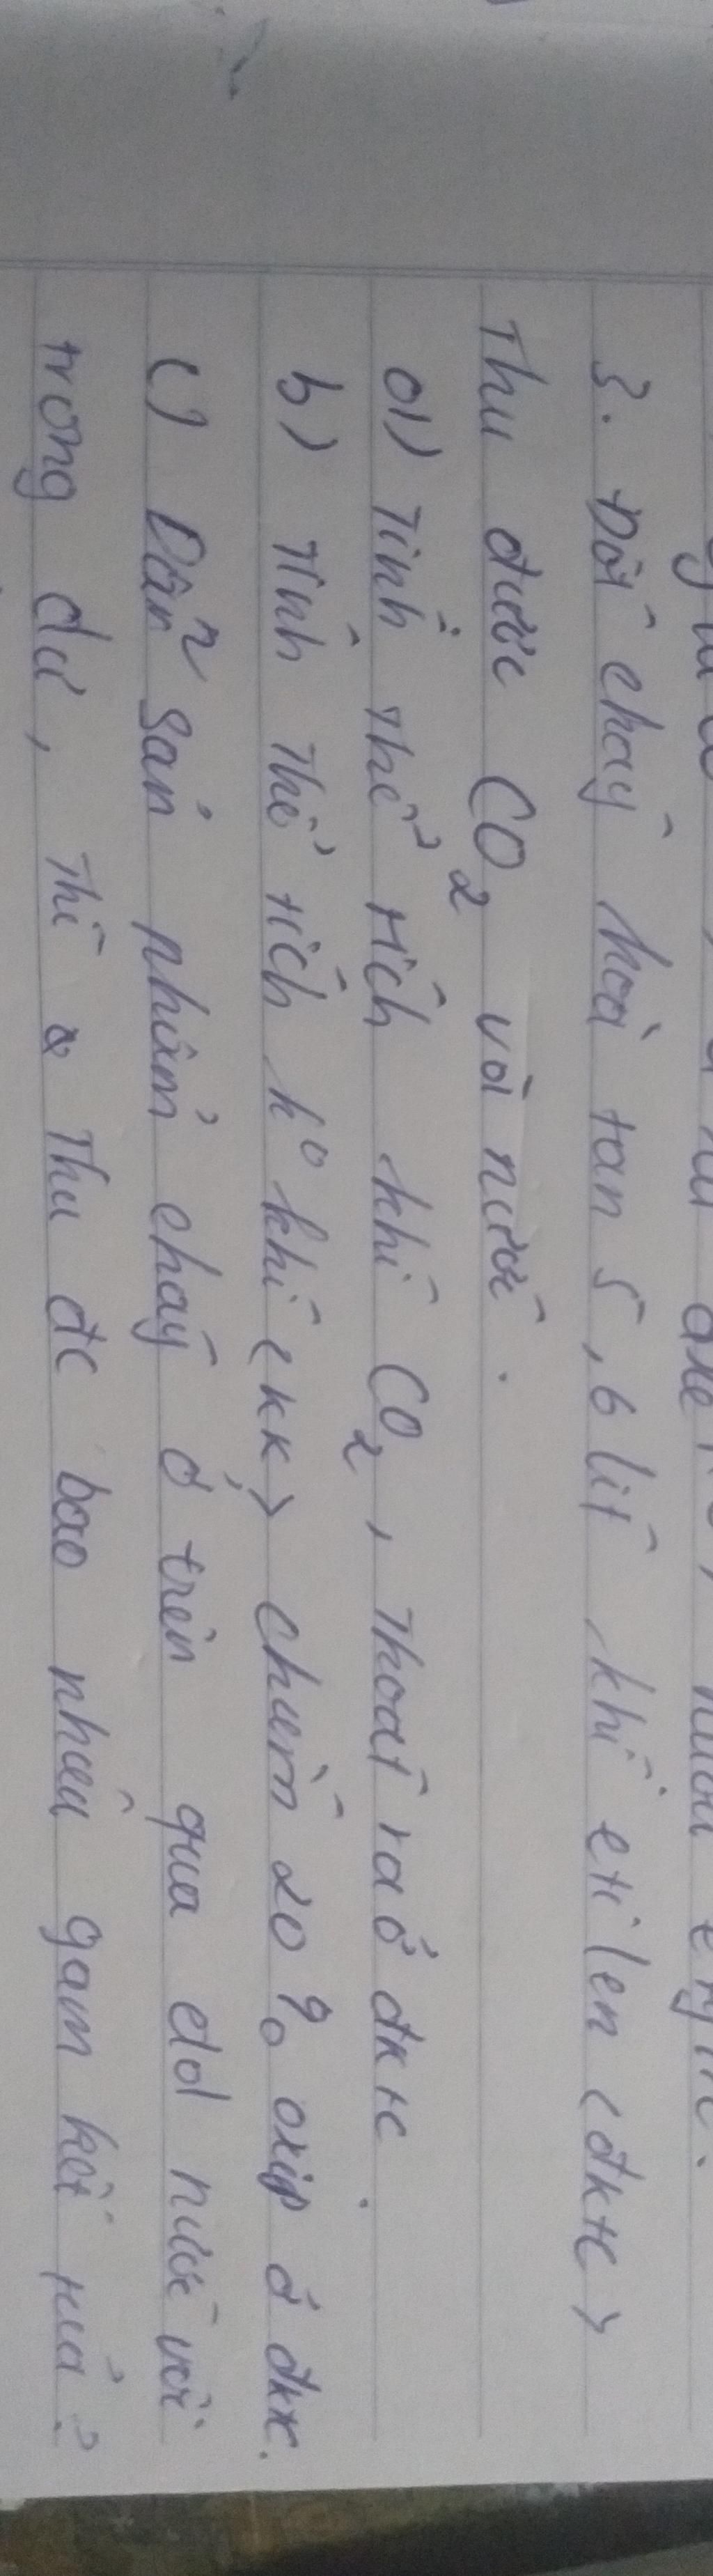 3. Đốt cháy hoà tan 5,6 lít khí etilen (đktc)
Thu được CO2 với nước.
a) Tính thể tích khí CO2, Thoát ra ở đktc
b) Tính Thể tích ko khí (kk) chứa 20% oxip ở đkx.
c) Dẫn sản phẩm cháy ở trên qua dd nước vôi
trong dư, Thì Thu đc bao nhiêu gam kết tủa?